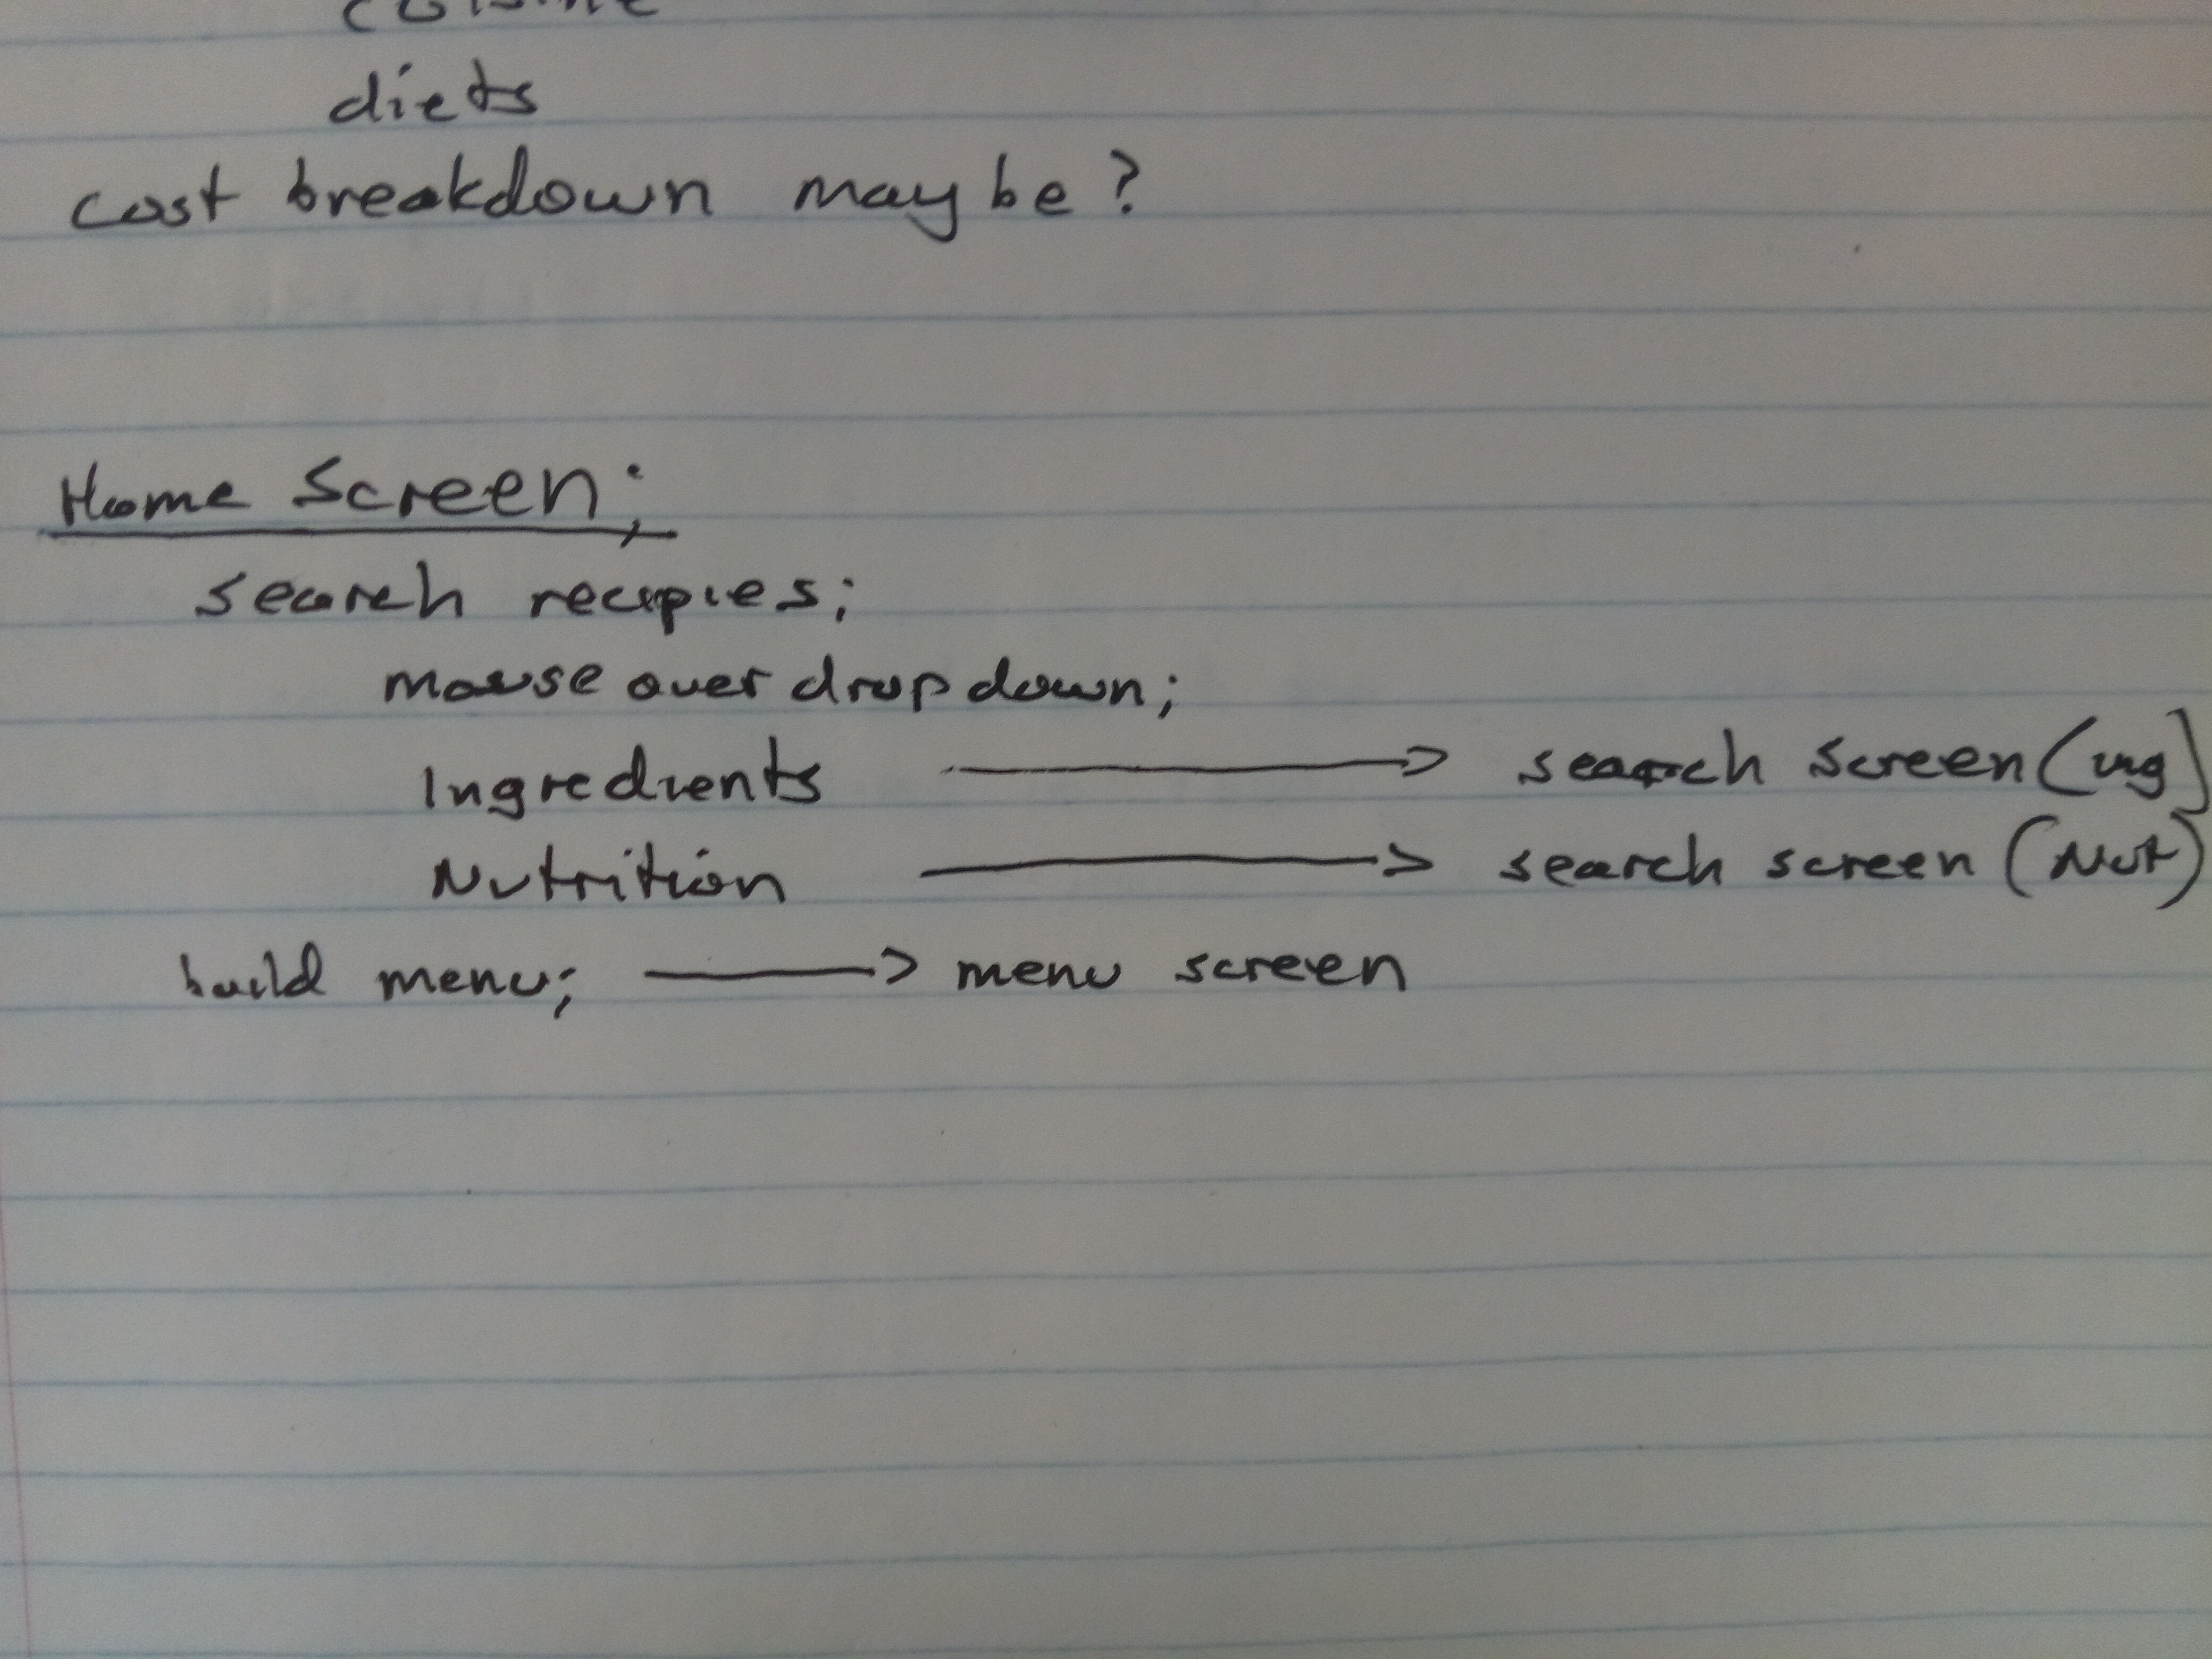 cuisine
diets
cost breakdown maybe?
Home Screen;
search recipies;
mouse over drop down;
Ingredients → search screen (ing)
Nutrition → search screen (Nut)
build menu; → menu screen